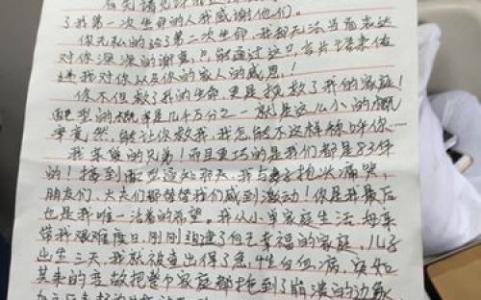 了我第一次生命的人我感谢他们。
你无私的给了第二次生命,我却无法当面表达
对你深深的谢意,只能通过这只言片语来传
递我对你以及你的家人的感恩!
你不但救了我的生命,更是挽救了我的家庭!
配型的概率是几千万分之一就是这么小的概
率竟然能让你救我,我怎能不这样称呼你…
我亲爱的兄弟!而且更巧的是我们都是83年
的!接到配型通知那天,我与妻子抱头痛哭,
朋友们、大夫们都替我们感到激动!你是我最后
也是我唯一活着的希望。我从小单亲家庭生活,母亲
带我艰难度日,刚刚组建了自己幸福的家庭,儿子
出生三天,我就被查出得了急性白血病,突如
其来的变故把整个家庭都拖到了崩溃的边缘